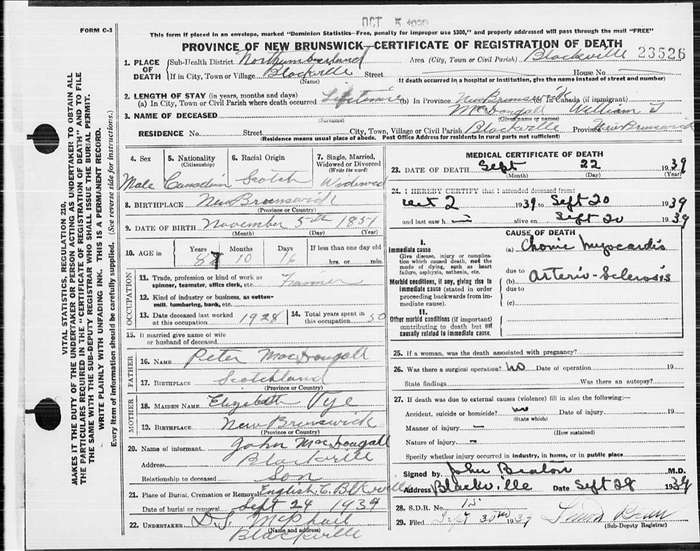 OCT 5 1939
FORM C-1
This form if placed in an envelope, marked "Dominion Statistics—Free, penalty for improper use $300," and properly addressed will pass through the mail "FREE"
PROVINCE OF NEW BRUNSWICK—CERTIFICATE OF REGISTRATION OF DEATH
23526
VITAL STATISTICS, REGULATION 210,
MAKES IT THE DUTY OF THE UNDERTAKER OR PERSON ACTING AS UNDERTAKER TO OBTAIN ALL
THE PARTICULARS REQUIRED IN THE "CERTIFICATE OF REGISTRATION OF DEATH" AND TO FILE
THE SAME WITH THE SUB-DEPUTY REGISTRAR WHO SHALL ISSUE THE BURIAL PERMIT.
WRITE PLAINLY WITH UNFADING INK. THIS IS A PERMANENT RECORD.
Every item of information should be carefully supplied. (See reverse side for instructions.)
1. PLACE OF DEATH
Sub-Health District Northumberland Area (City, Town or Civil Parish) Blackville
If in City, Town or Village Blackville Street House No
If death occurred in a hospital or institution, give the name instead of street and number
2. LENGTH OF STAY (in years, months and days)
(a) In City, Town or Civil Parish where death occurred Lifetime (b) In Province New Brunswick (c) In Canada (if immigrant)
3. NAME OF DECEASED McDougall William T
(Surname) (Given name or names)
RESIDENCE No. Street City, Town, Village or Civil Parish Blackville New Brunswick
(Residence means usual place of abode. Post Office Address for residents in rural parts not sufficient)
4. Sex Male
5. Nationality (Citizenship) Canadian
6. Racial Origin Scotch
7. Single, Married, Widowed or Divorced (Write the word) Widowed
8. BIRTHPLACE New Brunswick
(Province or Country)
9. DATE OF BIRTH November 5th 1851
(Month) (Day) (Year)
10. AGE in Years Months Days If less than one day old
87 10 16 hrs. or min.
OCCUPATION
11. Trade, profession or kind of work as spinner, teamster, office clerk, etc. Farmer
12. Kind of industry or business, as cotton-mill, lumbering, bank, etc.
13. Date deceased last worked at this occupation 1928
14. Total years spent in this occupation 50
15. If married give name of wife or husband of deceased
FATHER
16. Name Peter MacDougall
17. BIRTHPLACE Scotchland
(Province or Country)
MOTHER
18. MAIDEN NAME Elizabeth Vye
19. BIRTHPLACE New Brunswick
(Province or Country)
20. Name of informant John MacDougall
Address Blackville
Relationship to deceased Son
21. Place of Burial, Cremation or Removal English C. Blkville
Date of burial or removal Sept 24 1939
22. UNDERTAKER D.S. McPhail
(Name and address)
Blackville
MEDICAL CERTIFICATE OF DEATH
23. DATE OF DEATH Sept 22 1939
(Month) (Day) (Year)
24. I HEREBY CERTIFY that I attended deceased from
2 1939 to Sept 20 1939
and last saw h alive on Sept 20 1939
CAUSE OF DEATH
I.
Immediate cause
Give disease, injury or complication which caused death, not the mode of dying, such as heart failure, asphyxia, asthenia, etc.
(a) Chonic Myocardis
due to
Morbid conditions, if any, giving rise to immediate cause (stated in order proceeding backwards from immediate cause).
(b) Arterio-Sclerosis
due to
(c)
II.
Other morbid conditions (if important) contributing to death but not causally related to immediate cause.
25. If a woman, was the death associated with pregnancy?
26. Was there a surgical operation? No Date of operation 19
State findings Was there an autopsy?
27. If death was due to external causes (violence) fill in also the following:
Accident, suicide or homicide? no Date of injury 19
(State which)
Manner of injury —
(How sustained)
Nature of injury —
Specify whether injury occurred in industry, in home, or in public place
Signed by John M.D.
Address Blackville Date Sept 28 1939
28. S.D.R. No. 15
29. Filed Sept 30th 1939
(Sub-Deputy Registrar)